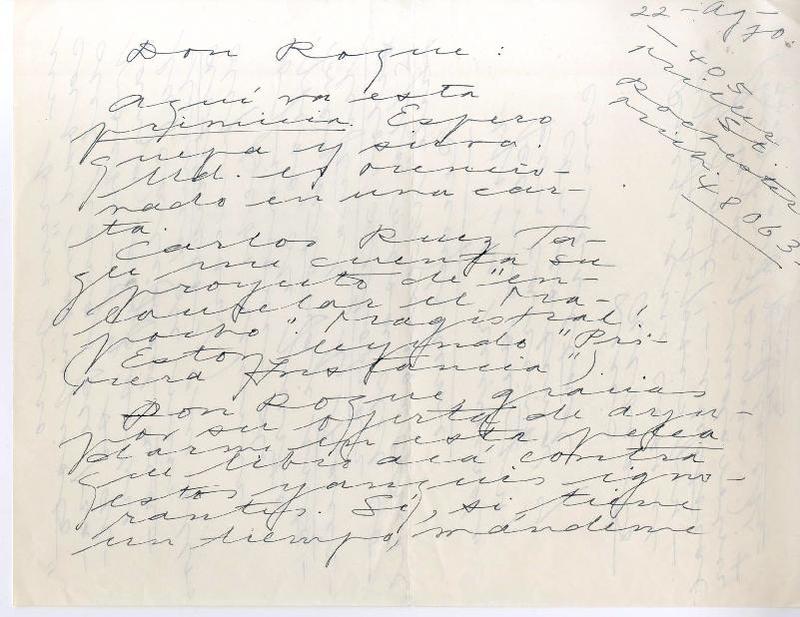 22-Ag-70.
405
Miller
St.
Rochester
Mich.
48063.
Don Roque:
Aquí va esta
primicia. Espero
quepa y sirva.
Ud. es mencio-
nado en una car-
ta.
Carlos Ruiz Ta-
gle me cuenta su
proyecto de "en-
the el Ma-
pocho". Magistral!
(Estoy leyendo "Pri-
mera Instancia").
Don Roque, gracias
por su oferta de ayu-
darme en esta pelea
que libro acá contra
estos yanquis igno-
rantes. Sí, si tiene
un tiempo, mándeme